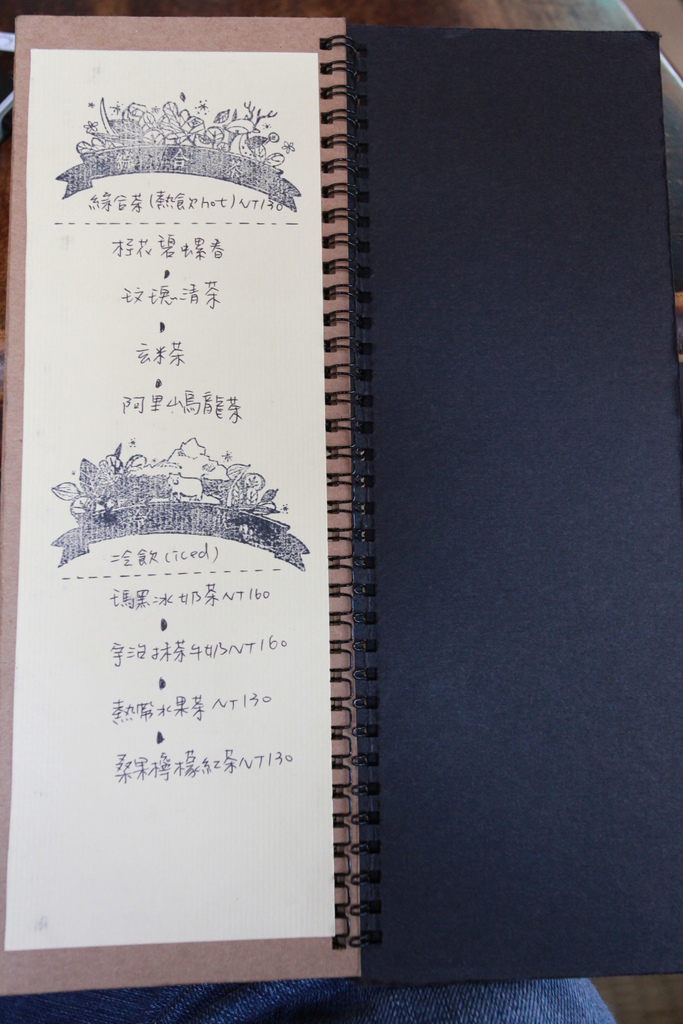 綜合茶
綜合茶(熱飲hot)NT130
桂花碧螺春
玫瑰清茶
玄米茶
阿里山烏龍茶
茶
冷飲(iced)
瑪黑冰奶茶NT160
宇治抹茶牛奶NT160
熱帶水果茶NT130
桑果檸檬紅茶NT130